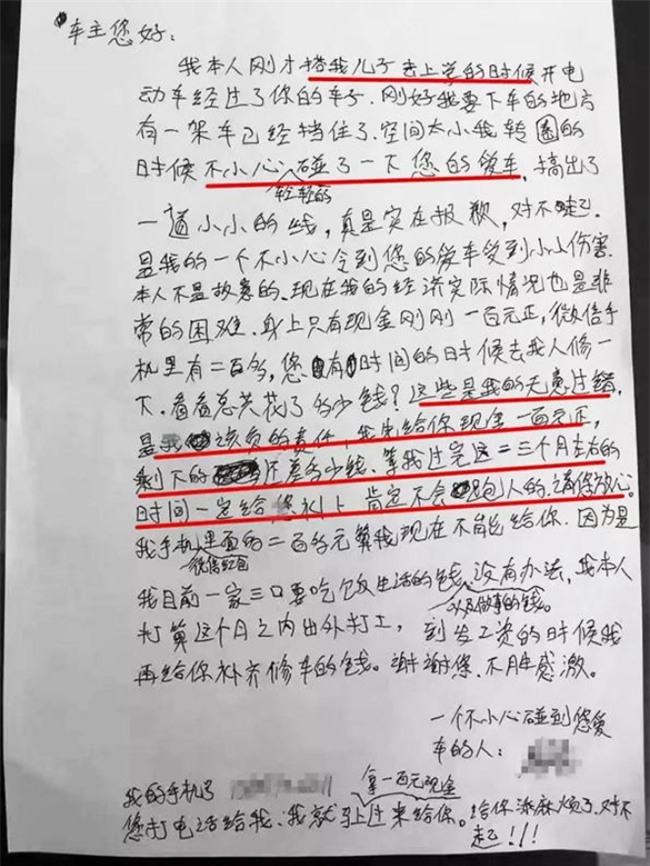 车主您好:
我本人刚才搭我儿子去上学的时候开电
动车经过了你的车子.刚好我要下车的地方
有一架车已经挡住了.空间太小我转圈的
时候不小心轻轻的碰了一下您的爱车,搞出了
一道小小的线,真是实在报歉,对不起.
是我的一个不小心令到您的爱车受到小小伤害.
本人不是故意的.现在我的经济实际情况也是非
常的困难.身上只有现金刚刚一百元正,微信手
机里有二百多,您有时间的时候去找人修一
下.看看总共花了多少钱?这些是我的无意过错,
是我该负的责任,我先给你现金一百元正,
剩下的还差多少钱.等我过完这二三个月左右的
时间一定给您补上肯定不会跑人的.请你放心。
我手机里面微信红包的二百多元算我现在不能给你.因为是
我目前一家三口要吃饭生活的钱以及做事的钱。没有办法,我本人
打算这个月之内出外打工,到发工资的时候我
再给你补齐修车的钱。谢谢您.不胜感激。
一个不小心碰到您爱
车的人:
我的手机号
您打电话给我.我就拿一百元现金马上过来给你。给你添麻烦了.对不
起!!!